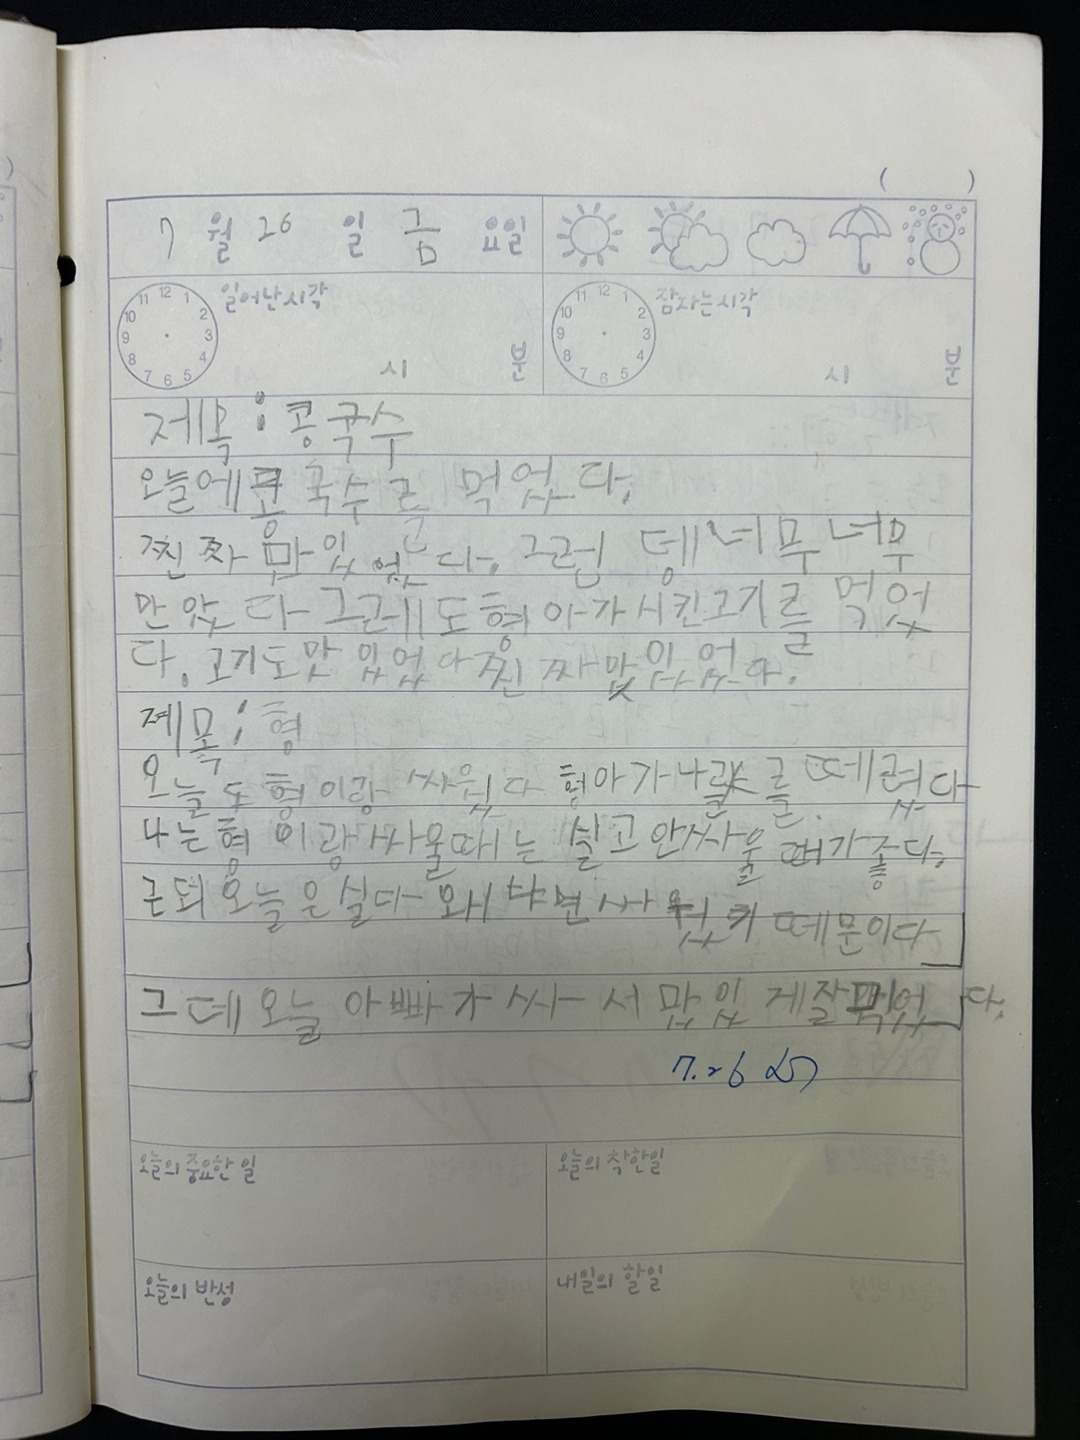 ( )
7 월 26 일 금 요일
일어난시각 11 12 1 10 2 9 3 8 4 7 6 5 시 분
잠자는시각 11 12 1 10 2 9 3 8 4 7 6 5 시 분
제목: 콩국수
오늘에콩국수를 먹었다.
찐짜 맜있었다. 그런 뎅너무 너무
만았다 그근데도형아가시킨고기를 먹었
다. 고기도맛있었다 찐짜맜있었다.
제목: 형
오늘도형이랑 싸웠다 형아가나를 떼렸다
나는형이랑싸울때는 실고안싸울때가좋다.
근데오늘은실다 왜냐면싸웠기 떼문이다
그데오늘 아빠가 싸서 맜있게잘먹었다.
7.26
오늘의 중요한 일
오늘의 착한일
오늘의 반성
내일의 할일